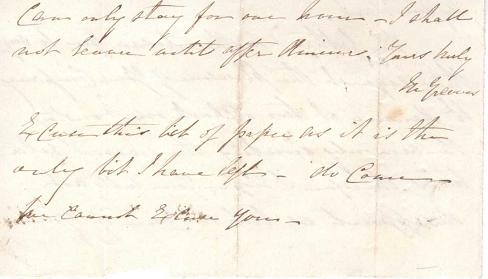 Can only stay for one hour – I shall
not leave until after dinner. Yours truly
Excuse this bit of paper as it is the
only bit I have left – do come
we cannot Excuse you –